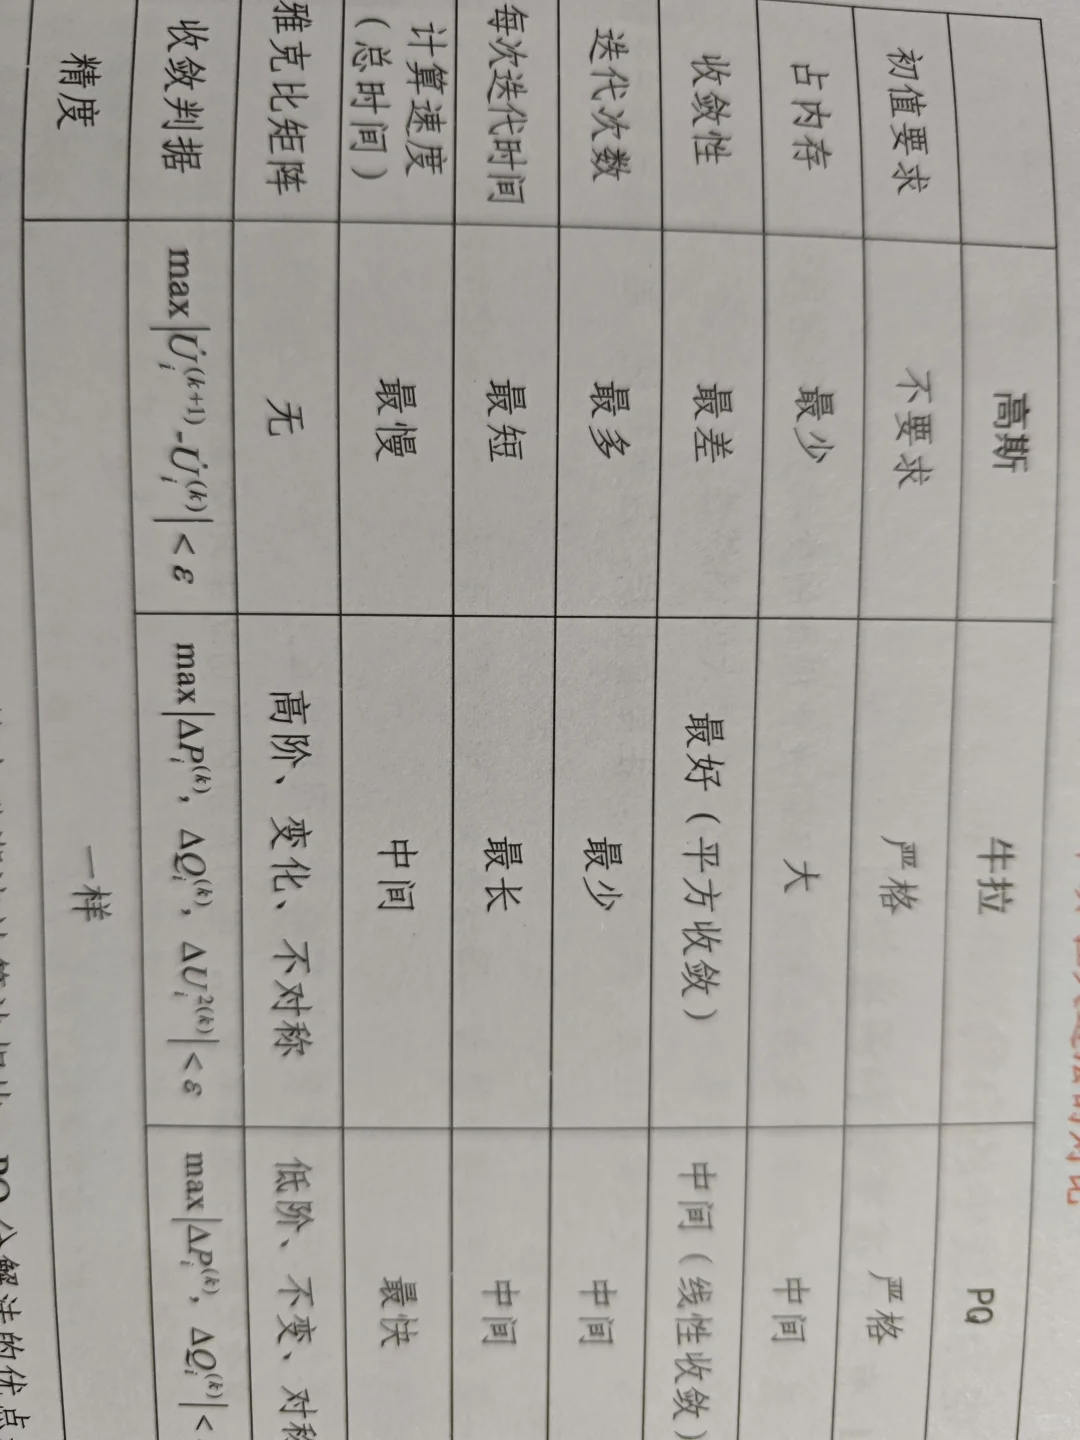 高斯 牛拉 PQ
初值要求 不要求 严格 严格
占内存 最少 大 中间
收敛性 最差 最好（平方收敛） 中间（线性收敛）
迭代次数 最多 最少 中间
每次迭代时间 最短 最长 中间
计算速度
（总时间） 最慢 中间 最快
雅克比矩阵 无 高阶、变化、不对称 低阶、不变、对称
收敛判据 max|U̇ᵢ⁽ᵏ⁺¹⁾-U̇ᵢ⁽ᵏ⁾|<ε max|ΔPᵢ⁽ᵏ⁾, ΔQᵢ⁽ᵏ⁾, ΔUᵢ²⁽ᵏ⁾|<ε max|ΔPᵢ⁽ᵏ⁾, ΔQᵢ⁽ᵏ⁾|<
精度 一样
PQ 分解法的优点